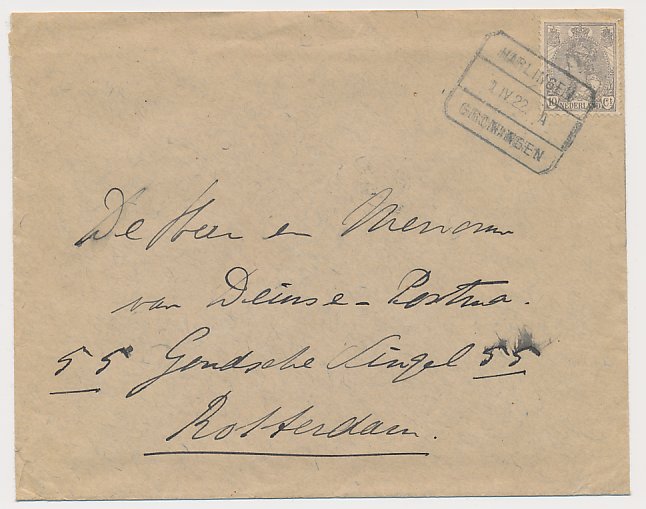 HARLINGEN
1.IV.22. A
GRONINGEN
10 NEDERLAND Ct
De Heer en Mevrouw
van Deinse-Postma.
55 Goudsche Singel 55
Rotterdam.